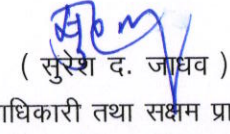 ( सुरेश द. जाधव )
ाधिकारी तथा सक्षम प्रा